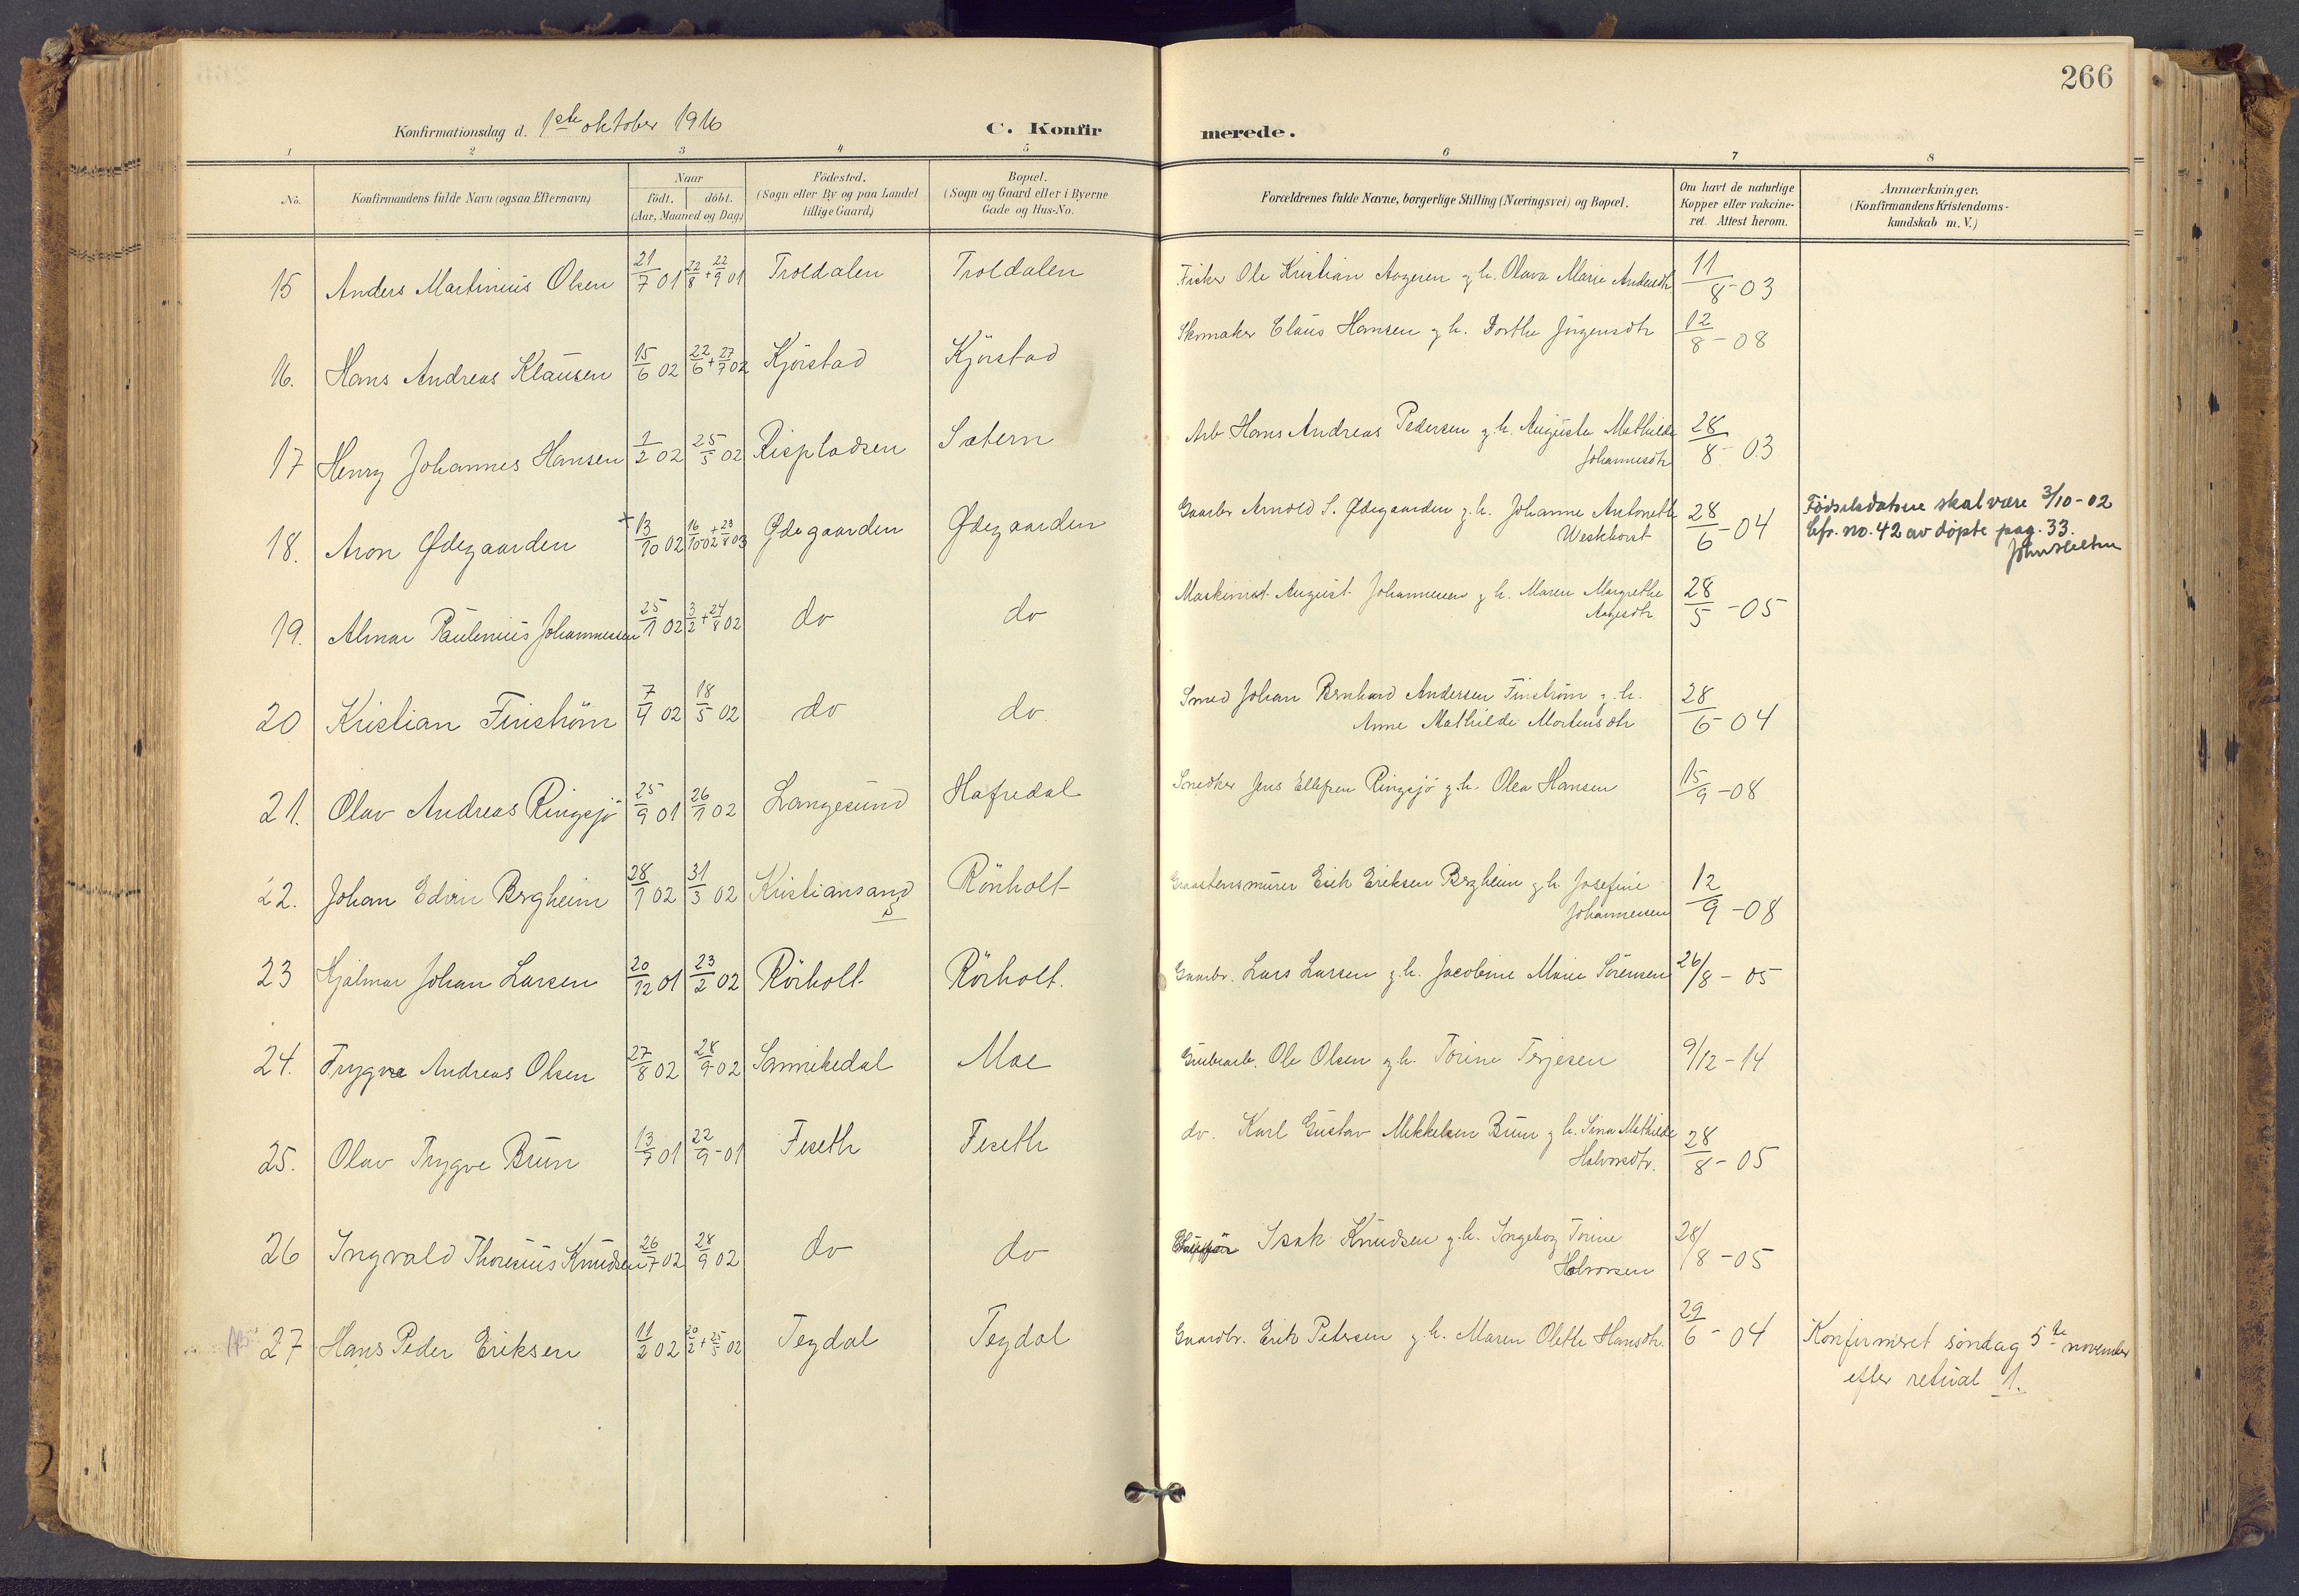 266
Konfirmationsdag d. 1ste oktober 1916
C. Konfirmerede.
1 2 3 4 5 6 7 8
No. Konfirmandens fulde Navn (ogsaa Efternavn) Naar født. døbt. (Aar, Maaned og Dag) Födested. (Sogn eller By og paa Landet tillige Gaard) Bopæl. (Sogn og Gaard eller i Byerne Gade og Hus-No. Forældrenes fulde Navne, borgerlige Stilling (Næringsvei) og Bopæl. Om havt de naturlige Kopper eller vakcineret. Attest herom. Anmærkninger. (Konfirmandens Kristendomskundskab m. V.)
15 Anders Martinius Olsen 21/7 01 22/8 + 22/9 01 Troldalen Troldalen Fisker Ole Kristian Aagesen g. h. Olava Marie Andersdtr 11/8-03
16. Hans Andreas Klausen 15/6 02 22/6 + 27/7 02 Kjörstad Kjörstad Skomaker Claus Hansen g. h. Dorthe Jörgensdtr 12/8-08
17 Henry Johannes Hansen 1/2 02 25/5 02 Rispladsen Sætern Arb. Hans Andreas Pedersen g. h. Auguste Mathilde
Johannesdtr 28/8-03
18. Aron Ødegaarden + 13/10 02 16/10 02 + 23/8 03 Ødegaarden Ødegaarden Gaarbr Arnold S. Ødegaarden g. h. Johanne Antonette
Weskhorst 28/6-04 Fødselsdatoen skal være 3/10-02
Cfr. no. 42 av døpte pag. 33.
19. Almar Paulinius Johannessen 25/1 02 3/2 + 24/8 02 do do Maskinist August Johannessen g. h. Maren Margrethe
Aagesdtr 28/5-05
20 Kristian Finström 7/4 02 18/5 02 do do. Smed Johan Bernhard Andersen Finström g. h.
Anne Mathilde Mortensdtr 28/6-04
21. Olav Andreas Ringsjö 25/9 01 26/1 02 Langesund Hafredal Snedker Jens Ellefsen Ringsjö g. h. Olea Hansen 15/9-08
22. Johan Edvin Bergheim 28/1 02 31/3 02 Kristiansand S Rönholt Graastensmurer Erik Eriksen Bergheim g. h. Josefine
Johannesen 12/9-08
23 Hjalmar Johan Larsen 20/12 01 23/2 02 Rörholt Rörholt. Gaarbr. Lars Larsen g. h. Jacobine Marie Sörensen 26/8-05
24. Trygve Andreas Olsen 27/8 02 28/9 02 Sannikedal Moe Grubearb. Ole Olsen g. h. Torine Terjesen 9/12-14
25. Olav Trygve Brun 13/7 01 22/9-01 Feseth Feseth do. Karl Gustav Mikkelsen Brun g. h. Sina Mathilde
Halvorsdtr. 28/8-05
26 Ingvald Thoresius Knudsen 26/7 02 28/9 02 do do Isak Knudsen g. h. Ingeborg Torine
Halvorsen 28/8-05
27 Hans Peder Eriksen 11/2 02 20/2 + 25/5 02 Tegdal Tegdal Gaardbr. Erik Petersen g. h. Maren Olette Hansdtr. 29/6-04 Konfirmeret söndag 5te november
efter retual 1.